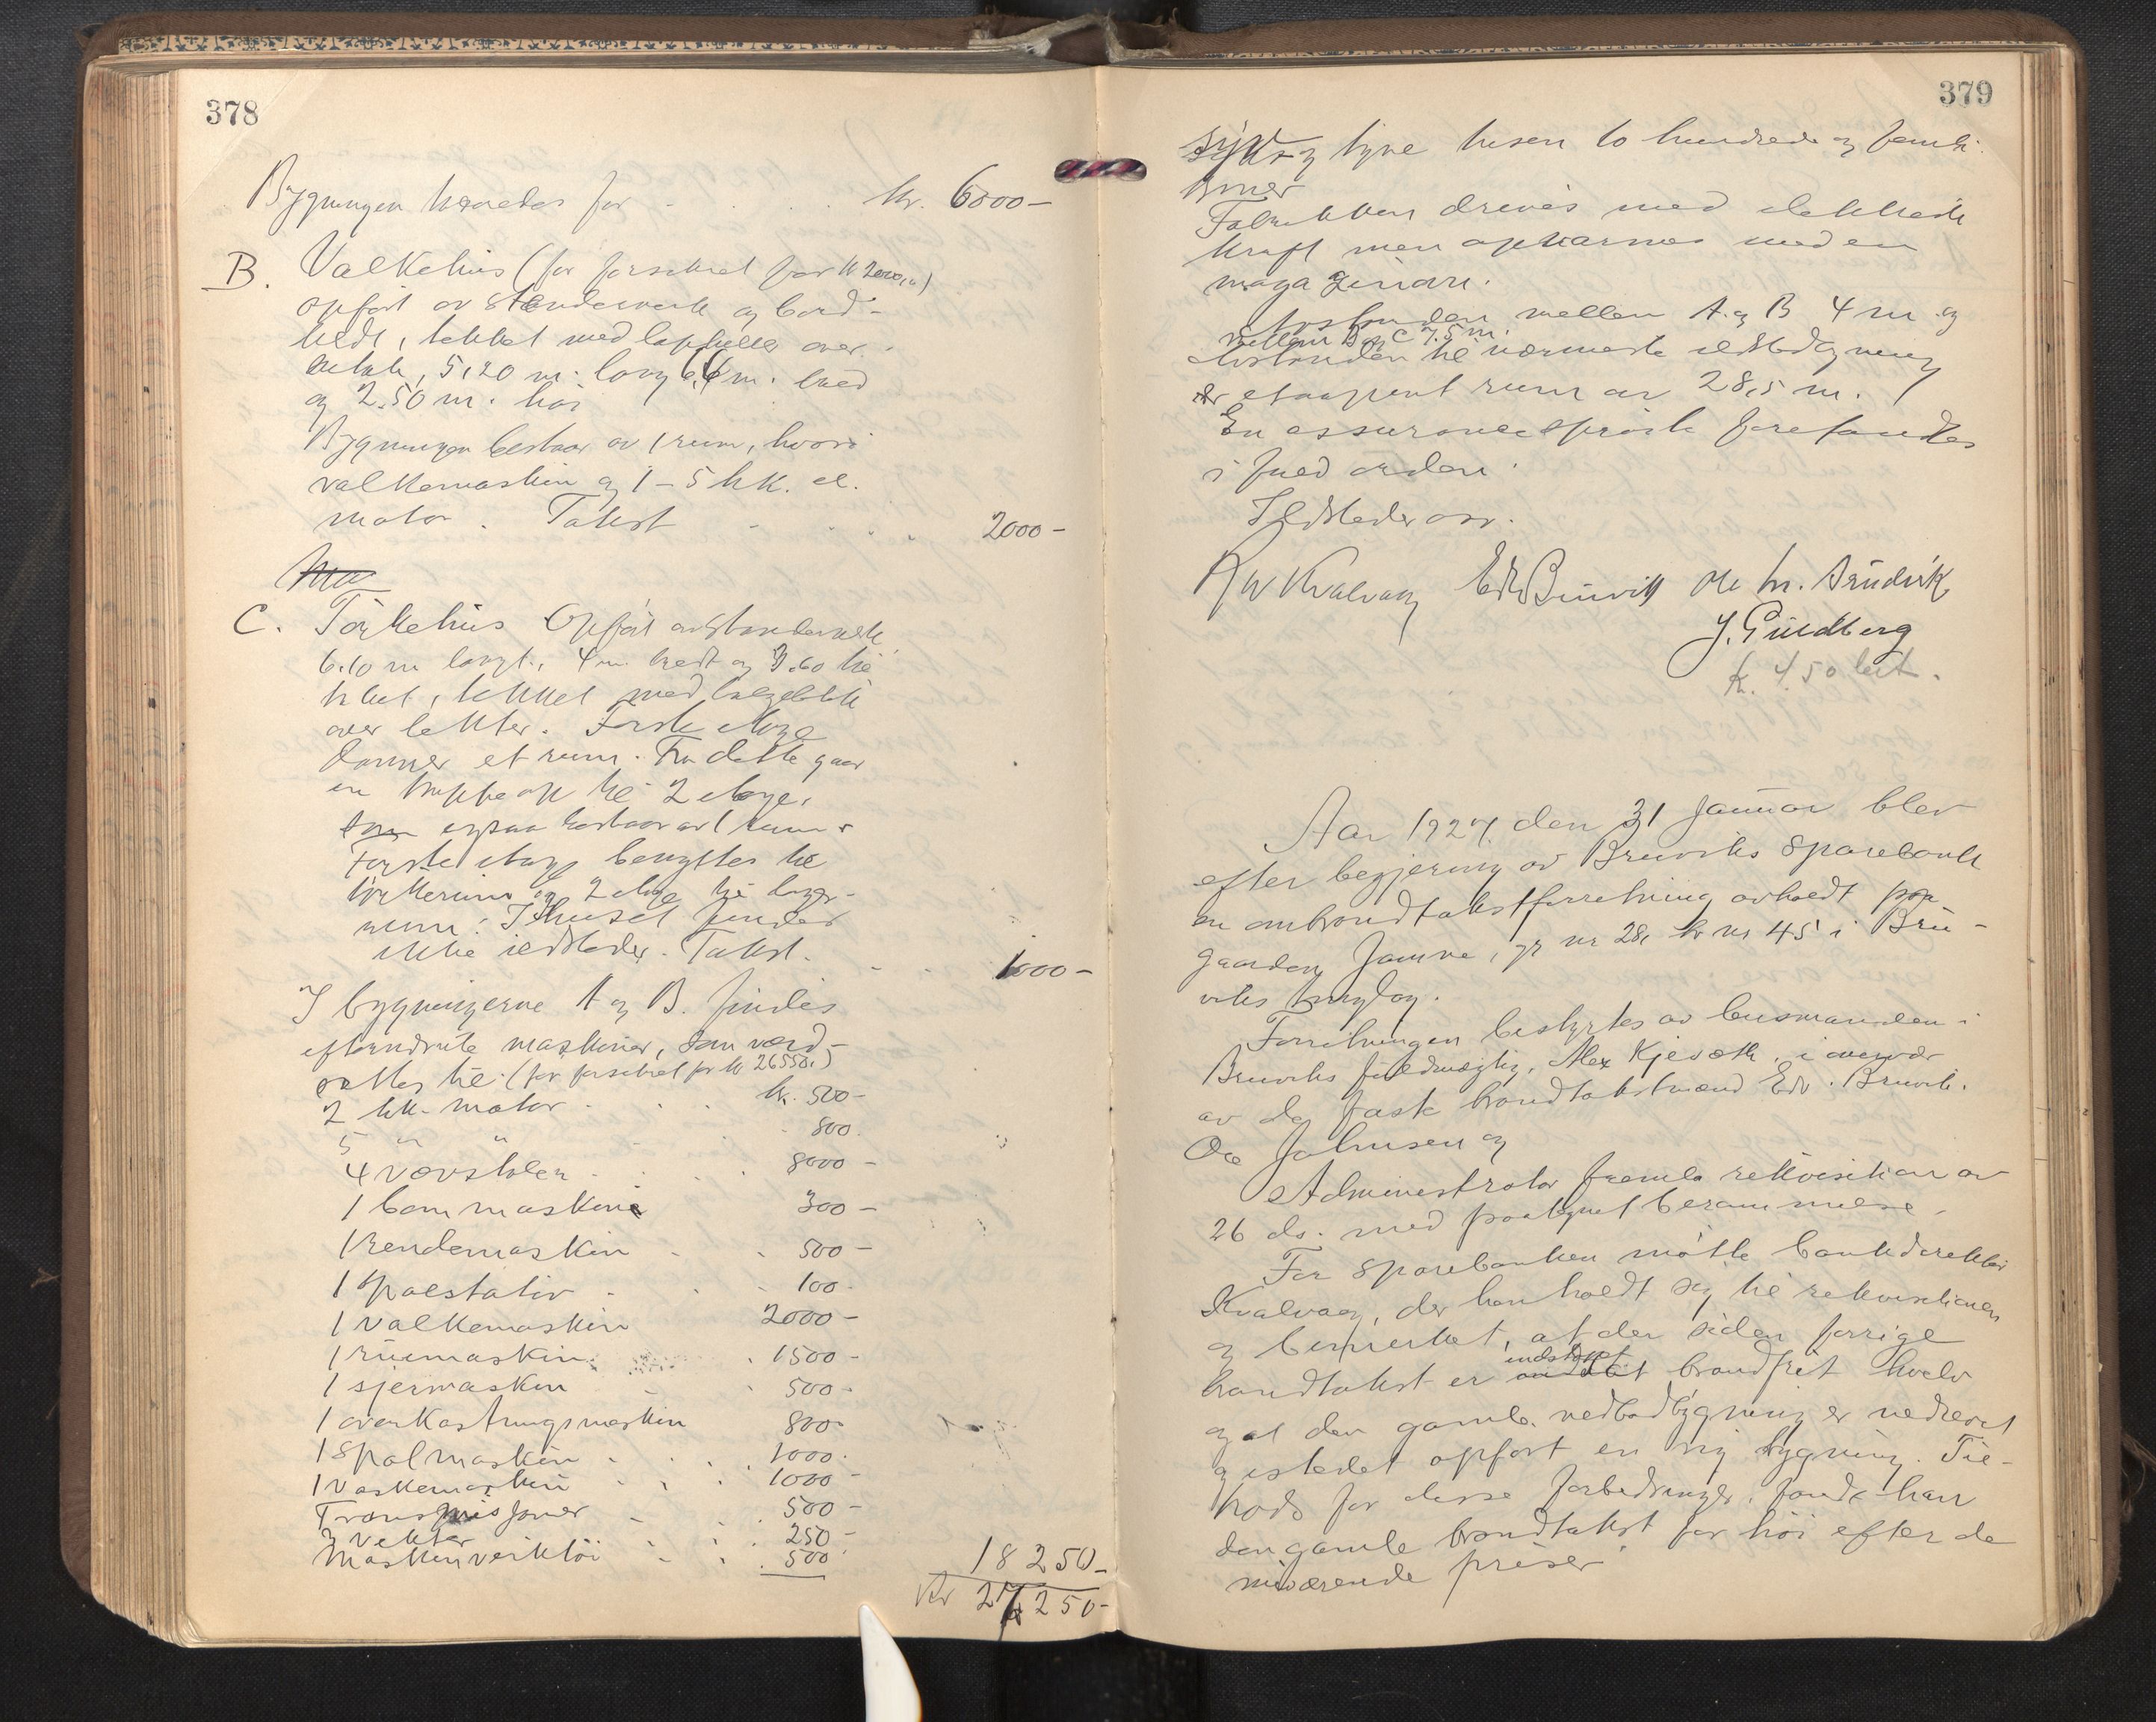 378
Bygningen værdes for . . . . kr. 6000 –
B. Valkehus (før forsikret for kr 2000,00)
opført av stenderverk og bord-
klædt, tekket med
5,20 m. lang 6,6 m. bred
og 2.50 m. høi
Bygningen bestaar av 1 rum, hvori
valkemaskin og 1 – 5 hk. el.
motor. Takst . . . 2000 –
C. Tørkehus Opført av stenderverk
6.10 m langt, 4 m. bredt og 3.60 høi
tekket med bølgeblik
over lekter. Første etage
danner et rum. Fra dette gaar
en trappe op til 2 etage,
som ogsaa bestaar av 1 rum.
Første etage benyttes til
tørkerum og 2 etage til lager-
rum. I huset findes
ikke ildsteder. Takst. . . . 1000 –
I bygningerne A og B. findes
efternævnte maskiner, som værd-
sættes til: (før forsikret for kr 26550,)
2 hk. motor . . . kr. 500 –
5 " " 800.
4 vævstoler . . . 8000 –
1 bommaskine 300 –
1 rendemaskin . . 500 –
1 spolestativ . . . 100 –
1 valkemaskin 2000 –
1 ruemaskin . 1500 –
1 sjermaskin 500 –
1 overkastningsmaskin 800 –
1 spolmaskin . . . 1000 –
1 vaskemaskin . . . 1000 –
Transmisjoner . . 500 –
3 vekter . . . 250 –
Maskinverktøi . . . 500 18 250 –
Kr 27 250 –
379
syv og tyve tusen to hundrede og femti
kroner
Fabrikken drives med elektrisk
kraft men opvarmes med en
magasinovn.
Avstanden mellem A. og B 4 m. og
mellem B og C 7,5 m.
Avstanden til nærmeste ildstedbygning
er etaapent rum av 28,5 m.
En assurancesprøite forefandtes
i fuld orden.
Ildsteder
Kvalvaag Edv Bruvik Ole
J. Guldberg
k. 4.50 bet.
Aar 1927 den 31 januar blev
efter begjæring av Bruviks Sparebank
en ombrandtakstforretning avholdt paa
gaarden Jamne, gr nr 28, br nr 45 i Bru-
viks tinglag.
Forretningen bestyrtes av lensmanden i
Bruviks fuldmægtig, Alex Kjevoth, i overvær
av de faste brandtakstmænd Edv. Bruvik.
Ole Johnsen og
Administrator fremla rekvisition av
26 ds. med paategnet berammelse.
For sparebanken møtte bankdirektør
Kvalvaag, der henholdt sig til rekvisitionen
og bemerket, at der siden forrige
brandtakst er indsat brandfrit hvelv
og at den gamle vedbodbygning er nedrevet
og istedet opført en ny bygning. Til-
trods for disse forbedringer, fandt han
den gamle brandtakst for høi efter de
nuværende priser.